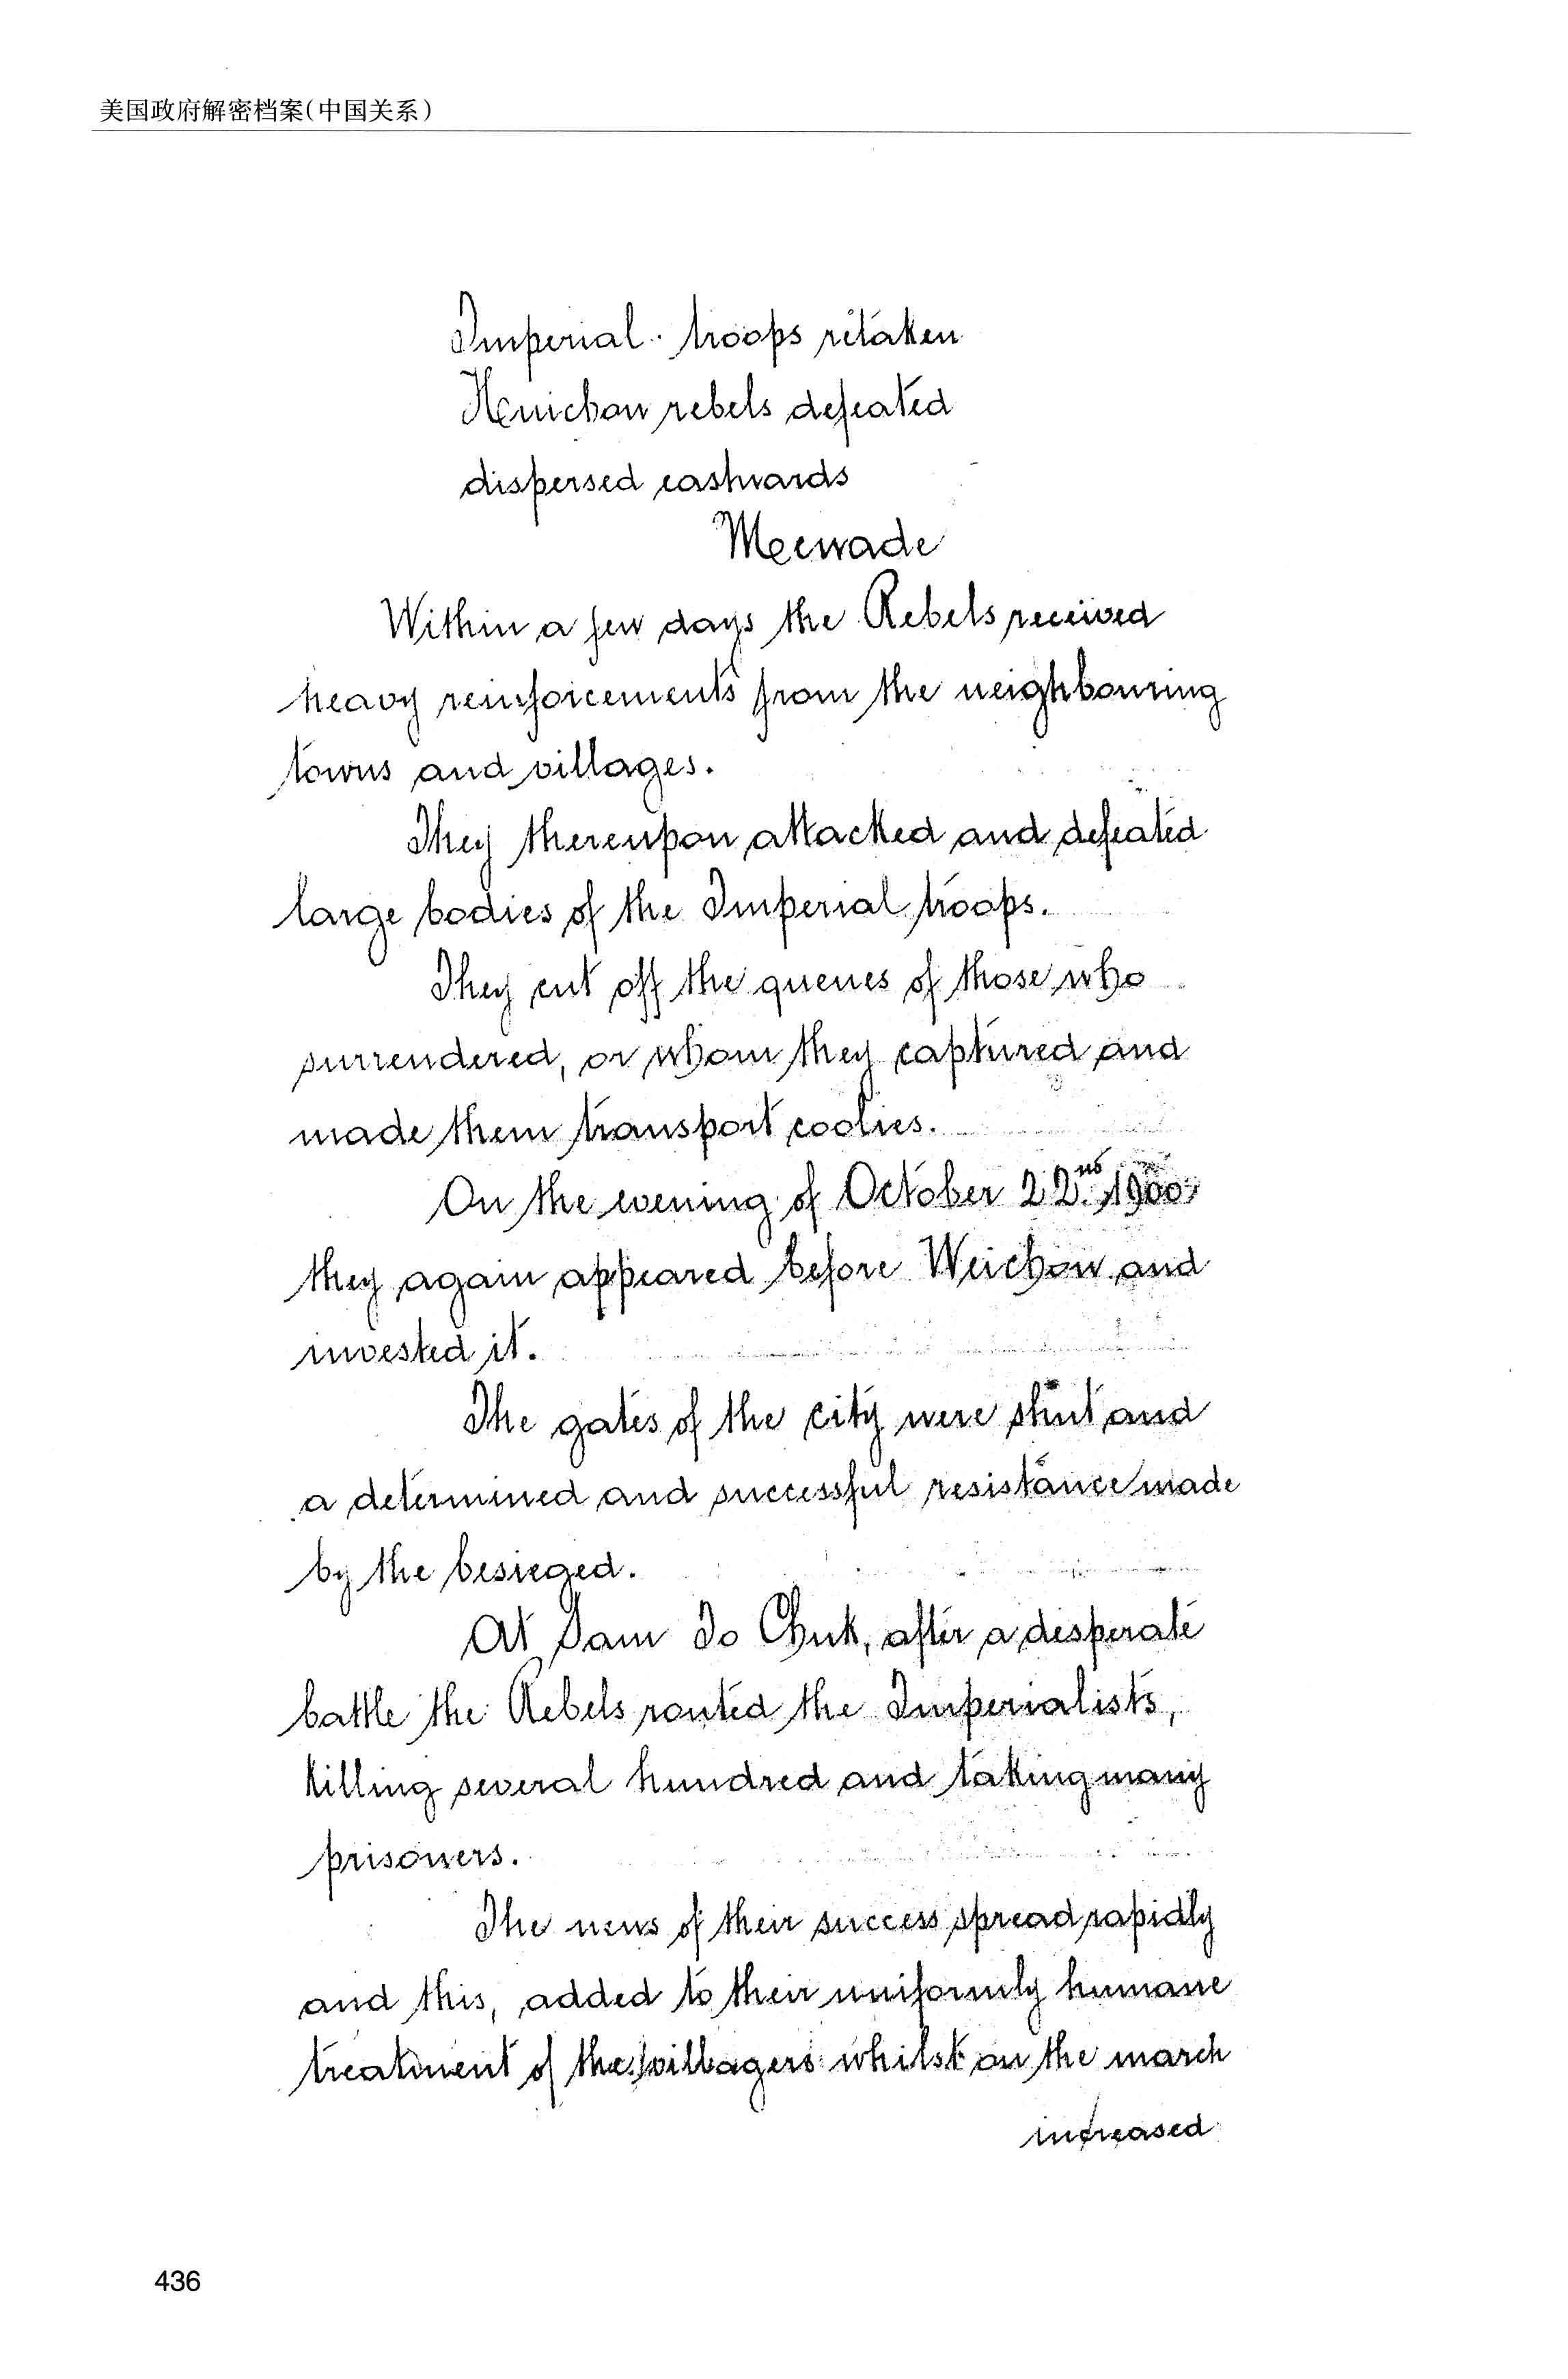 美国政府解密档案(中国关系)
Imperial troops retaken
Kuichow rebels defeated
dispersed eastwards
McWade
Within a few days the Rebels received
heavy reinforcements from the neighbouring
towns and villages.
They thereupon attacked and defeated
large bodies of the Imperial troops.
They cut off the queues of those who
surrendered, or whom they captured and
made them transport coolies.
On the evening of October 22nd, 1900,
they again appeared before Weichow and
invested it.
The gates of the city were shut and
a determined and successful resistance made
by the besieged.
At Sam To Chuk, after a desperate
battle the Rebels routed the Imperialists,
killing several hundred and taking many
prisoners.
The news of their success spread rapidly
and this, added to their uniformly humane
treatment of the villagers whilst on the march
increased
436